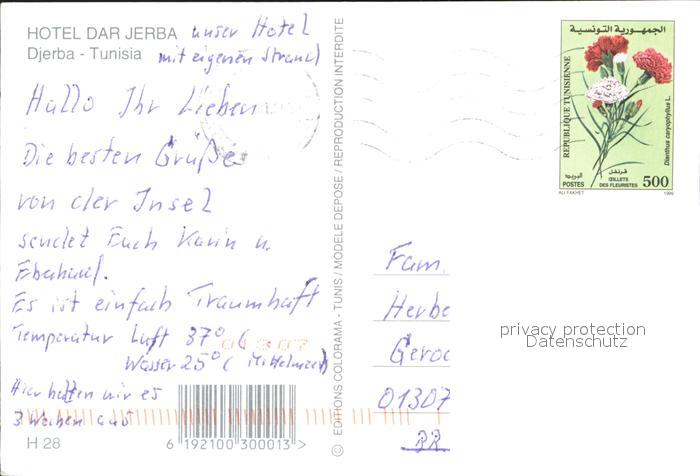 HOTEL DAR JERBA unser Hotel
Djerba - Tunisia mit eigenen Strand
Hallo Ihr Lieben
Die besten Grüße
von der Insel
sendet Euch Karin u.
Eberhard.
Es ist einfach Traumhaft
Temperatur Luft 37° (
Wasser 25° ( Mittelmeer)
Hier halten wir es
3 Wochen aus
H 28
6 192100 300013
© EDITIONS COLORAMA - TUNIS / MODELE DEPOSE / REPRODUCTION INTERDITE
الجمهورية التونسية
REPUBLIQUE TUNISIENNE
Dianthus caryophyllus L.
قرنفل
البريد
POSTES
ŒILLETS
DES FLEURISTES
500
ALI FAKHET
1999
Fam.
Herbe
Geroc
01307
privacy protection
Datenschutz
01307